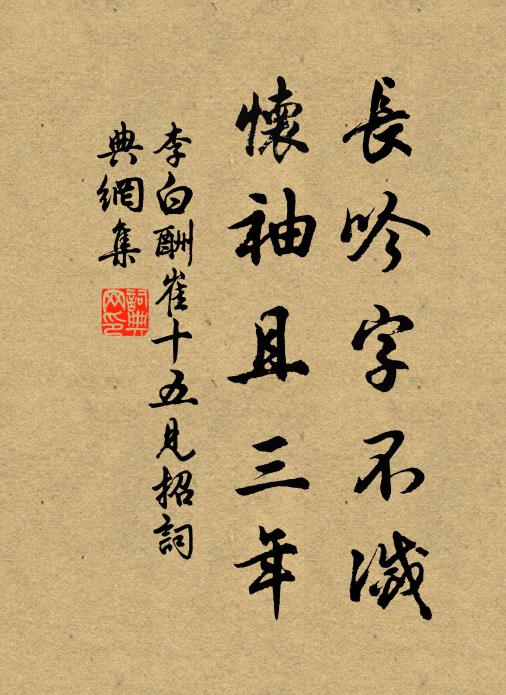 長吟字不滅
懷袖且三年
李白酬崔十五見招詞
典網集
詞典網印